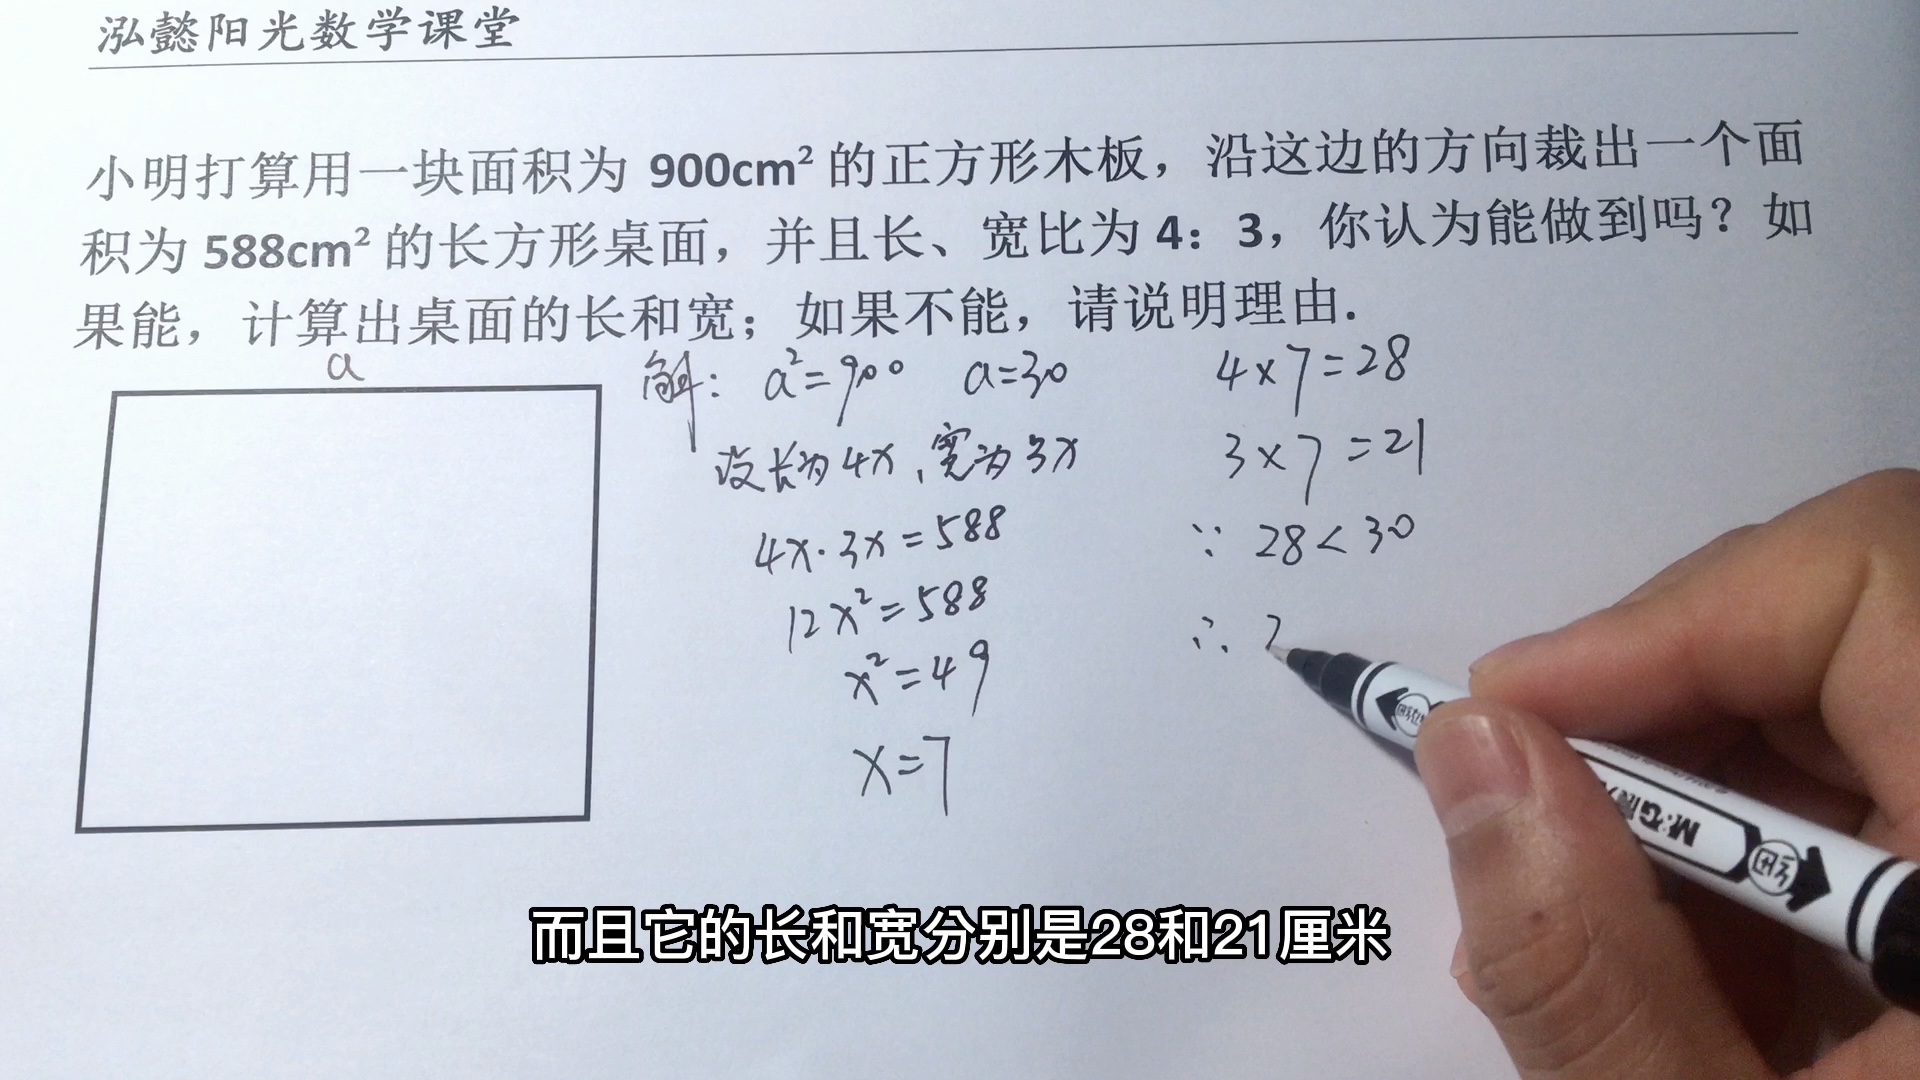 泓懿阳光数学课堂
小明打算用一块面积为 900cm² 的正方形木板，沿这边的方向裁出一个面
积为 588cm² 的长方形桌面，并且长、宽比为 4：3，你认为能做到吗？如
果能，计算出桌面的长和宽；如果不能，请说明理由.
a
解： a²=900 a=30
设长为4x，宽为3x
4x·3x=588
12x²=588
x²=49
x=7
4×7=28
3×7=21
∵ 28<30
∴
M&G
而且它的长和宽分别是28和21厘米